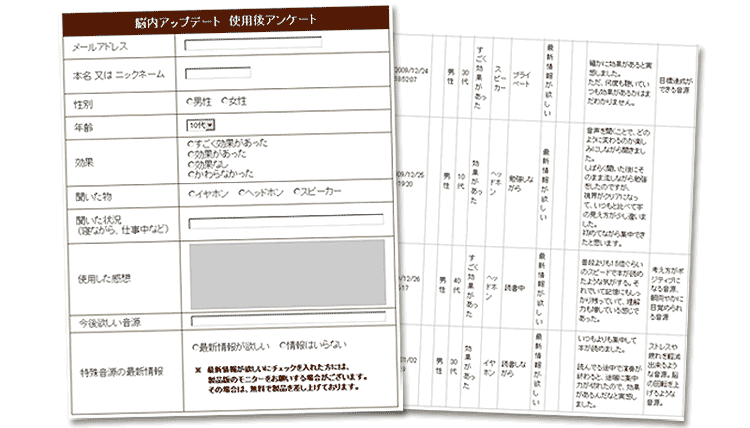 脳内アップデート 使用後アンケート
メールアドレス
本名 又は ニックネーム
性別
○男性 ○女性
年齢
10代
効果
○すごく効果があった
○効果があった
○効果なし
○かわらなかった
聞いた物
○イヤホン ○ヘッドホン ○スピーカー
聞いた状況
(寝ながら、仕事中など)
使用した感想
今後欲しい音源
特殊音源の最新情報
○最新情報が欲しい ○情報はいらない
※ 最新情報が欲しいにチェックを入れた方には、
製品版のモニターをお願いする場合がございます。
その場合は、無料で製品を差し上げております。
2009/12/24
男性
30代
すごく効果があった
スピーカー
プライベート
最新情報が欲しい
細かに効果があると実
感しました。
ただ、何度も聴いてい
つも効果があるかはま
だわかりません。
目標達成が
できる音源
男性
10代
効果があった
ヘッドホン
勉強しな
がら
最新情報が欲しい
音声を聞くことで、どの
ように変わるのか楽し
みにしながら聞きまし
た。
しばらく聞いた後にそ
のまま流しながら勉強
をしたのですが、
視界がクリアになっ
て、いつもと比べて字
の見え方が少し違いま
した。
初めてながら集中でき
たと思います。
男性
40代
すごく効果があった
ヘッドホン
読書中
最新情報が欲しい
普段よりも1.5倍ぐらい
のスピードで本が読め
たような気がする。そ
れでいて記憶にもしっ
かり残っていて、理解
力も増している感じで
あった。
考え方がポ
ジティブに
なる音源、
朝爽やかに
目覚められ
る音源
男性
30代
効果があった
イヤホン
読書しな
がら
最新情報が欲しい
いつもよりも集中して
本が読めました。
読んでる途中で演奏が
終わると、途端に集中
力が切れたので、効果
があるんだなと実感し
ました。
ストレスや
疲れを軽減
出来るよう
な音源。脳
の回転を上
げるような
音源。